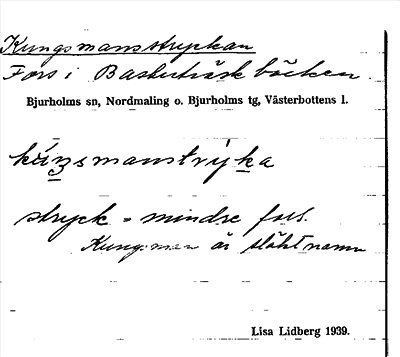 Kungsmansstryckan
Fors i Bastuträskbäcken.
Bjurholms sn, Nordmaling o. Bjurholms tg, Västerbottens l.
stryck = mindre fors.
Kungsman är släktnamn
Lisa Lidberg 1939.